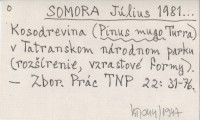 SOMORA Július 1981...
Kosodrevina (Pinus mugo Turra)
v Tatranskom národnom parku
(rozšírenie, vzrastové formy).
— Zbor. Prác TNP 22: 31-76.